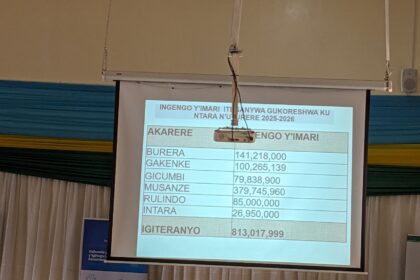 INGENGO Y'IMARI ITEGANYWA GUKORESHWA KU
NTARA N'UTURERE 2025-2026
AKARERE INGENGO Y'IMARI
BURERA 141,218,000
GAKENKE 100,265,139
GICUMBI 79,838,900
MUSANZE 379,745,960
RULINDO 85,000,000
INTARA 26,950,000
IGITERANYO 813,017,999